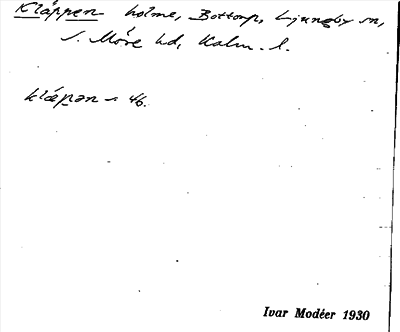 Kläppen holme, Bottorp, Ljungby sn,
S. Möre hd, Kalm. l.
klǽpən ~ 46.
Ivar Modéer 1930